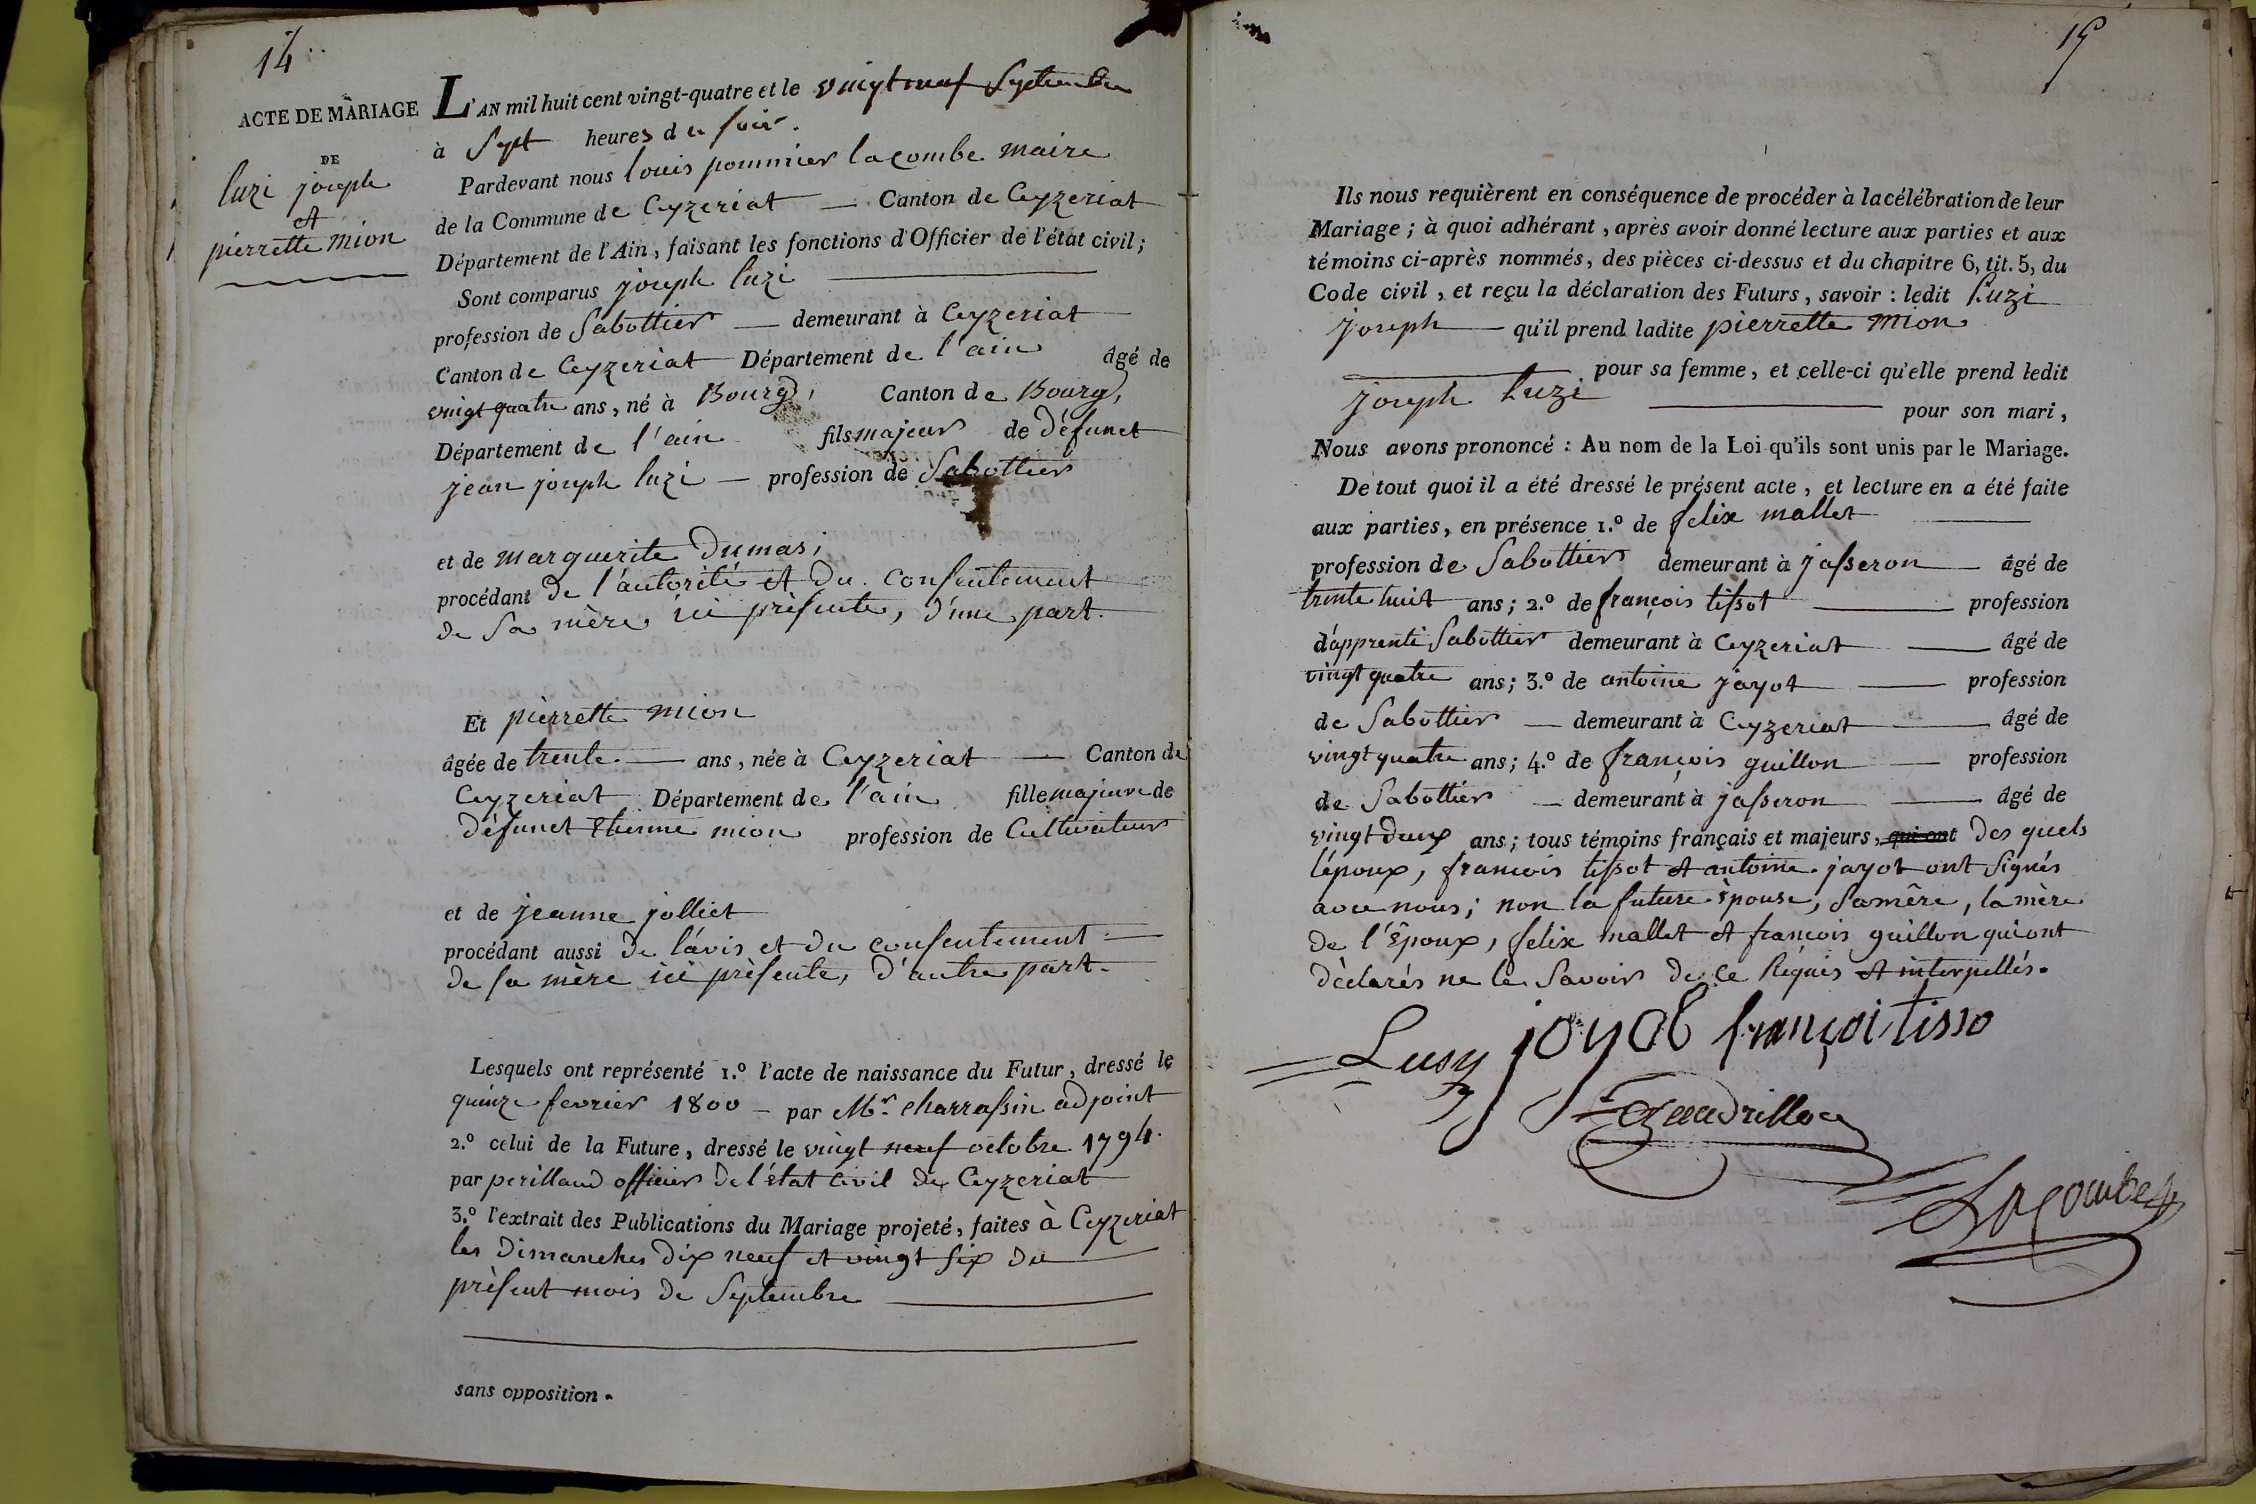 14
ACTE DE MARIAGE
DE
luzi joseph
et
pierrette mion
L'AN mil huit cent vingt-quatre et le vingt neuf Septembre
à Sept heures du soir.
Pardevant nous louis pommier lacombe maire
de la Commune de Ceyzeriat — Canton de Ceyzeriat
Département de l'Ain, faisant les fonctions d'Officier de l'état civil;
Sont comparus joseph luzi —
profession de Sabottier — demeurant à Ceyzeriat
Canton de Ceyzeriat Département de l'ain âgé de
vingt quatre ans, né à Bourg, Canton de Bourg,
Département de l'ain fils majeur de Défunct
jean joseph luzi — profession de Sabottier
et de marguerite Dumas;
procédant de l'autorité et du consentement
de Sa mère ici présente, d'une part.
Et pierrette mion
âgée de trente — ans, née à Ceyzeriat — Canton de
Ceyzeriat Département de l'ain fille majeure de
défunct Etienne mion profession de Cultivateur
et de jeanne jolliet
procédant aussi de l'avis et du consentement
de sa mère ici présente, d'autre part.
Lesquels ont représenté 1.º l'acte de naissance du Futur, dressé le
quinze fevrier 1800 — par Mr. Charrassin adjoint
2.º celui de la Future, dressé le vingt neuf octobre 1794.
par perillaud officier de l'état civil de Ceyzeriat
3.º l'extrait des Publications du Mariage projeté, faites à Ceyzeriat
les Dimanches dix neuf et vingt six du
présent mois de Septembre —
sans opposition.
15
Ils nous requièrent en conséquence de procéder à la célébration de leur
Mariage; à quoi adhérant, après avoir donné lecture aux parties et aux
témoins ci-après nommés, des pièces ci-dessus et du chapitre 6, tit. 5, du
Code civil, et reçu la déclaration des Futurs, savoir : ledit Luzi
joseph — qu'il prend ladite pierrette mion
— pour sa femme, et celle-ci qu'elle prend ledit
joseph Luzi — pour son mari,
Nous avons prononcé : Au nom de la Loi qu'ils sont unis par le Mariage.
De tout quoi il a été dressé le présent acte, et lecture en a été faite
aux parties, en présence 1.º de felix mallet —
profession de Sabottier demeurant à jasseron — âgé de
trente huit ans; 2.º de françois tissot — profession
d'apprenti Sabottier demeurant à Ceyzeriat — âgé de
vingt quatre ans; 3.º de antoine jayot — profession
de Sabottier — demeurant à Ceyzeriat — âgé de
vingt quatre ans; 4.º de françois guillon — profession
de Sabottier — demeurant à jasseron — âgé de
vingt deux ans; tous témoins français et majeurs, qui ont des quels
l'époux, francois tissot et antoine jayot ont signés
avec nous; non la future épouse, sa mère, la mère
de l'époux, felix mallet et francois guillon qui ont
déclarés ne le Savoir de ce Requis et interpellés.
Lusy joyob françoi tisso
Lacombe